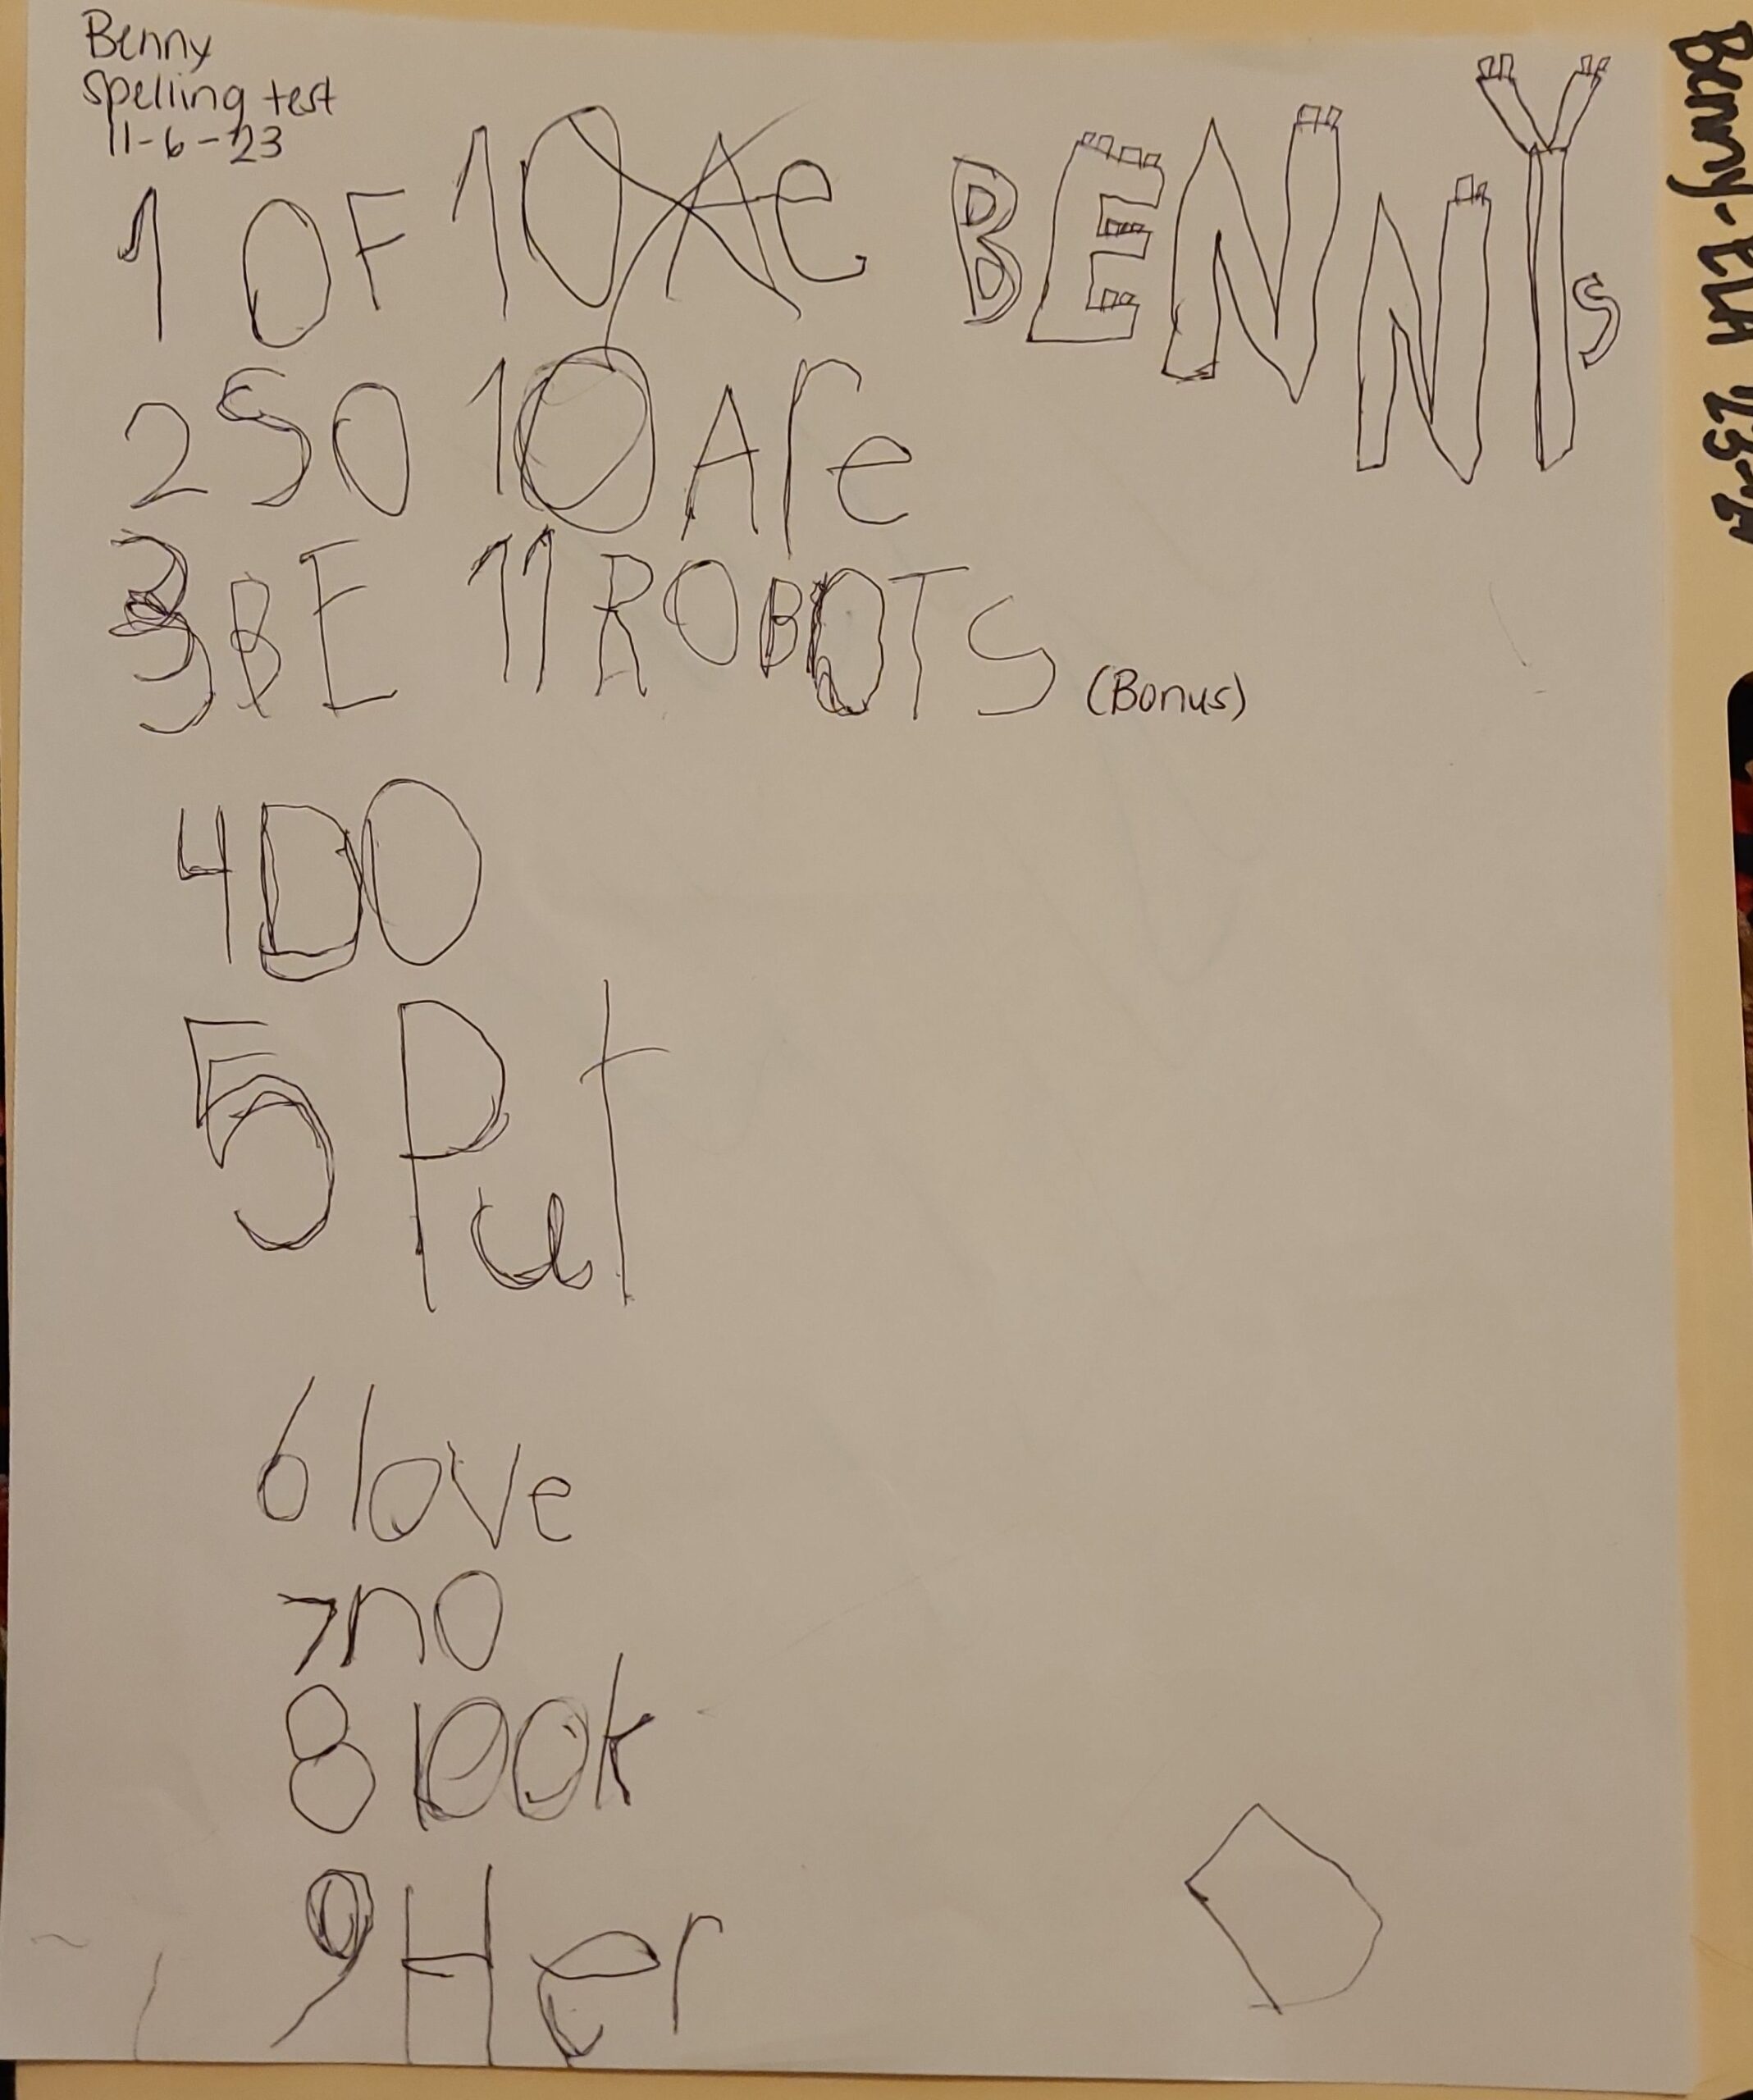 Benny
Spelling test
11-6-23
1 OF
2 SO
3 BE
4 DO
5 Put
6 love
7 no
8 look
9 Her
10 Ae
10 Are
11 ROBOTS (Bonus)
BENNYs
Benny-ELA '23-'24